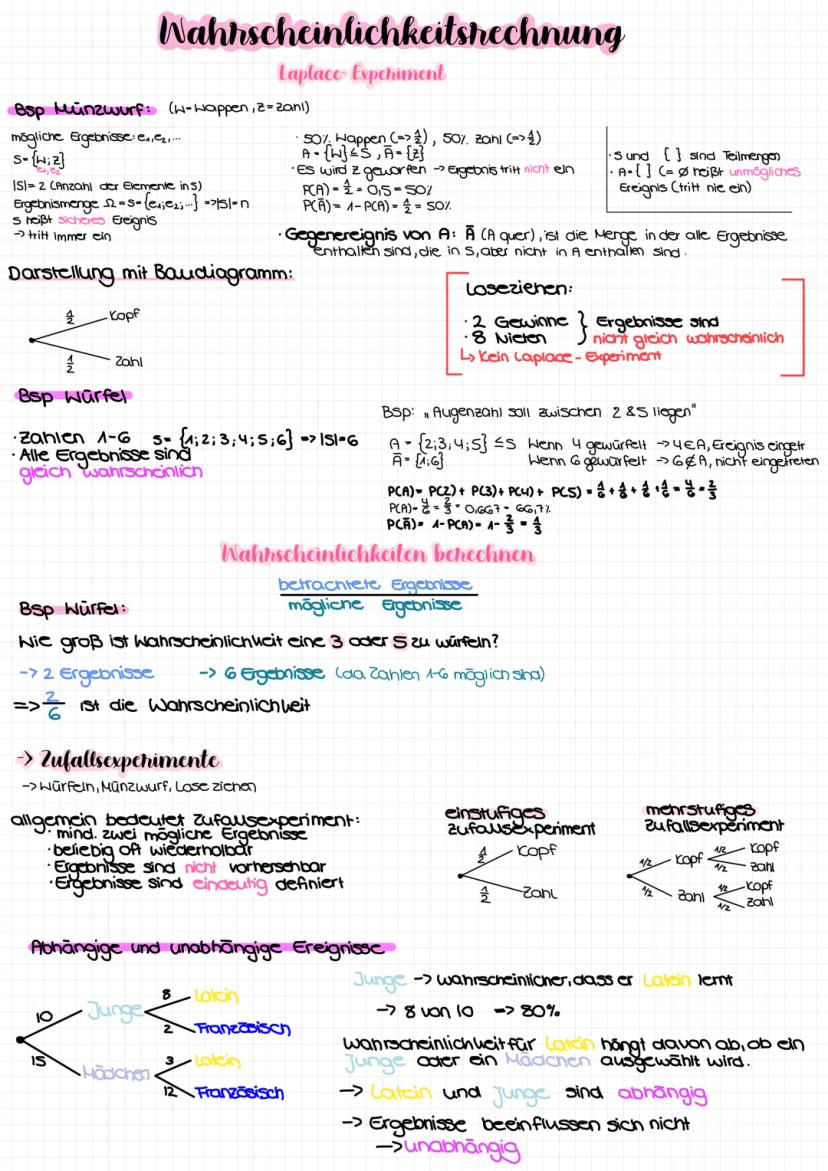 Wahrscheinlichkeitsrechnung
Laplace-Experiment
Bsp Münzwurf: (W=Wappen, Z=Zahl)
mögliche Ergebnisse: e₁,e₂,...
S={W;Z}
e₁;e₂
|S|= 2 (Anzahl der Elemente in S)
Ergebnismenge Ω=S={e₁;e₂;...} =>|S|=n
S heißt sicheres Ereignis
-> tritt immer ein
· 50% Wappen (=>½), 50% Zahl (=>½)
A={W}≤S, Ā={Z}
· Es wird Z geworfen -> Ergebnis tritt nicht ein
P(A)=½=0,5=50%
P(Ā)=1-P(A)=½=50%
· S und { } sind Teilmengen
· A={ } (=Ø heißt unmögliches
Ereignis (tritt nie ein)
· Gegenereignis von A: Ā (A quer), ist die Menge in der alle Ergebnisse
enthalten sind, die in S, aber nicht in A enthalten sind.
Darstellung mit Baudiagramm:
½ Kopf
½ Zahl
Loseziehen:
· 2 Gewinne } Ergebnisse sind
· 8 Nieten } nicht gleich wahrscheinlich
↳ Kein Laplace-Experiment
Bsp Würfel
· Zahlen 1-6 S={1;2;3;4;5;6} =>|S|=6
· Alle Ergebnisse sind
gleich wahrscheinlich
Bsp: „Augenzahl soll zwischen 2 & 5 liegen"
A={2;3;4;5} ≤S Wenn 4 gewürfelt -> 4∈A, Ereignis eingetr
Ā={1;6} Wenn 6 gewürfelt -> 6∉A, nicht eingetreten
P(A)= P(2)+ P(3)+P(4)+ P(5) = 1/6 + 1/6 + 1/6 + 1/6 = 4/6 = 2/3
P(A)= 4/6 = 2/3 = 0,667 = 66,7%
P(Ā)= 1-P(A)= 1- 2/3 = 1/3
Wahrscheinlichkeiten berechnen
betrachtete Ergebnisse
mögliche Ergebnisse
Bsp Würfel:
Wie groß ist Wahrscheinlichkeit eine 3 oder 5 zu würfeln?
-> 2 Ergebnisse -> 6 Ergebnisse (da Zahlen 1-6 möglich sind)
=> 2/6 ist die Wahrscheinlichkeit
-> Zufallsexperimente
-> Würfeln, Münzwurf, Lose ziehen
allgemein bedeutet Zufallsexperiment:
· mind. zwei mögliche Ergebnisse
· beliebig oft wiederholbar
· Ergebnisse sind nicht vorhersehbar
· Ergebnisse sind eindeutig definiert
einstufiges
Zufallsexperiment
½ Kopf
½ Zahl
mehrstufiges
Zufallsexperiment
1/2 Kopf 1/2 Kopf
1/2 Zahl
1/2 Zahl 1/2 Kopf
1/2 Zahl
Abhängige und unabhängige Ereignisse
10 Junge 8 Latein
2 Französisch
15 Mädchen 3 Latein
12 Französisch
Junge -> wahrscheinlicher, dass er Latein lernt
-> 8 von 10 => 80%
Wahrscheinlichkeit für Latein hängt davon ab, ob ein
Junge oder ein Mädchen ausgewählt wird.
-> Latein und Junge sind abhängig
-> Ergebnisse beeinflussen sich nicht
-> unabhängig